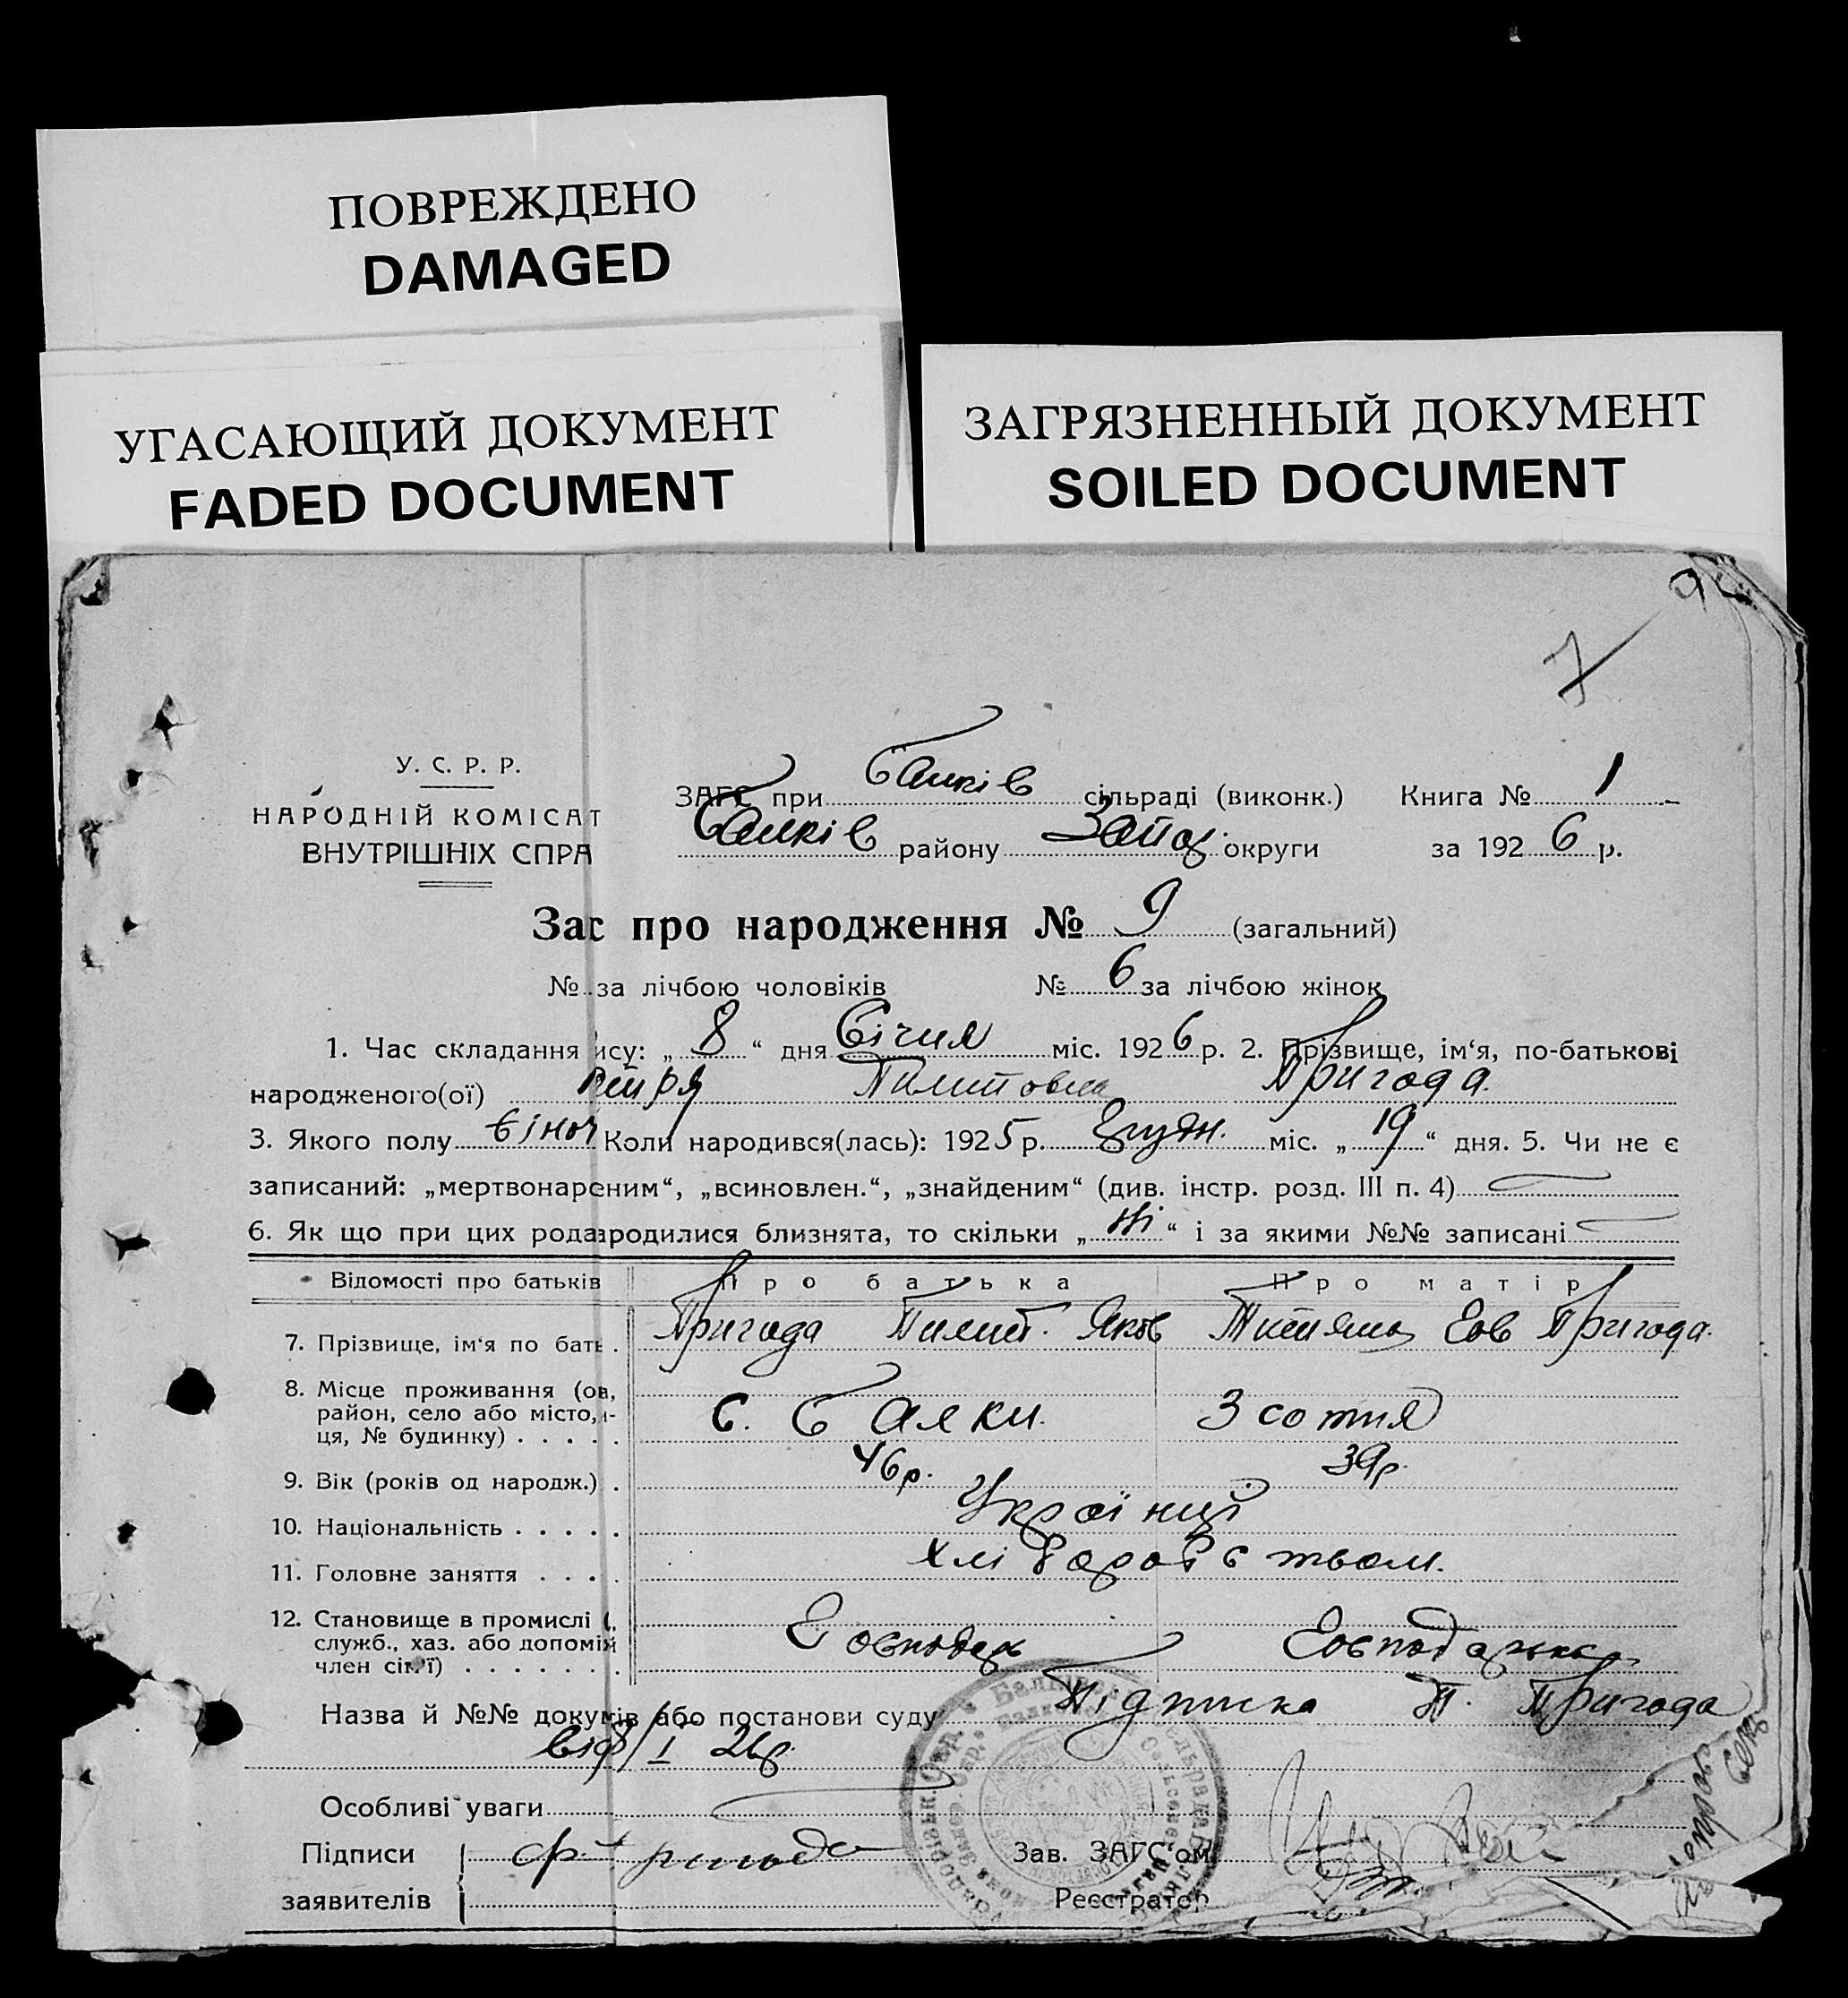 ПОВРЕЖДЕНО
DAMAGED
УГАСАЮЩИЙ ДОКУМЕНТ
FADED DOCUMENT
ЗАГРЯЗНЕННЫЙ ДОКУМЕНТ
SOILED DOCUMENT
7
У. С. Р. Р.
НАРОДНІЙ КОМІСАТ
ВНУТРІШНІХ СПРА
ЗАГС при Балків сільраді (виконк.) Книга № 1
Балків району Запор. округи за 1926 р.
Зас про народження № 9 (загальний)
№ за лічбою чоловіків № 6 за лічбою жінок
1. Час складання ису: „8“ дня Січня міс. 1926 р. 2. Прізвище, ім‘я, по-батькові
народженого(ої) Пригода.
3. Якого полу жіноч Коли народився(лась): 1925 р. Грудн. міс. „19“ дня. 5. Чи не є
записаний: „мертвонареним“, „всиновлен.“, „знайденим“ (див. інстр. розд. III п. 4)
6. Як що при цих рода родилися близнята, то скільки „Ні“ і за якими №№ записані
Відомості про батьків Про батька Про матір
7. Прізвище, ім‘я по бать. Пригода Пилип. Яков Тетяна Пригода.
8. Місце проживання (ов,
район, село або місто, и-
ця, № будинку) с. Балки. 3 сотня
9. Вік (років од народж.) 46 р. 39 р.
10. Національність Українці
11. Головне заняття Хліборобством.
12. Становище в промислі (,
служб., хаз. або допомій
член сім‘ї) Господарь Господарька
Назва й №№ докумів або постанови суду Підписка П. Пригода
від 8/I 26 р.
Особливі уваги
Підписи
заявителів
Зав. ЗАГС‘ом
Реєстратор